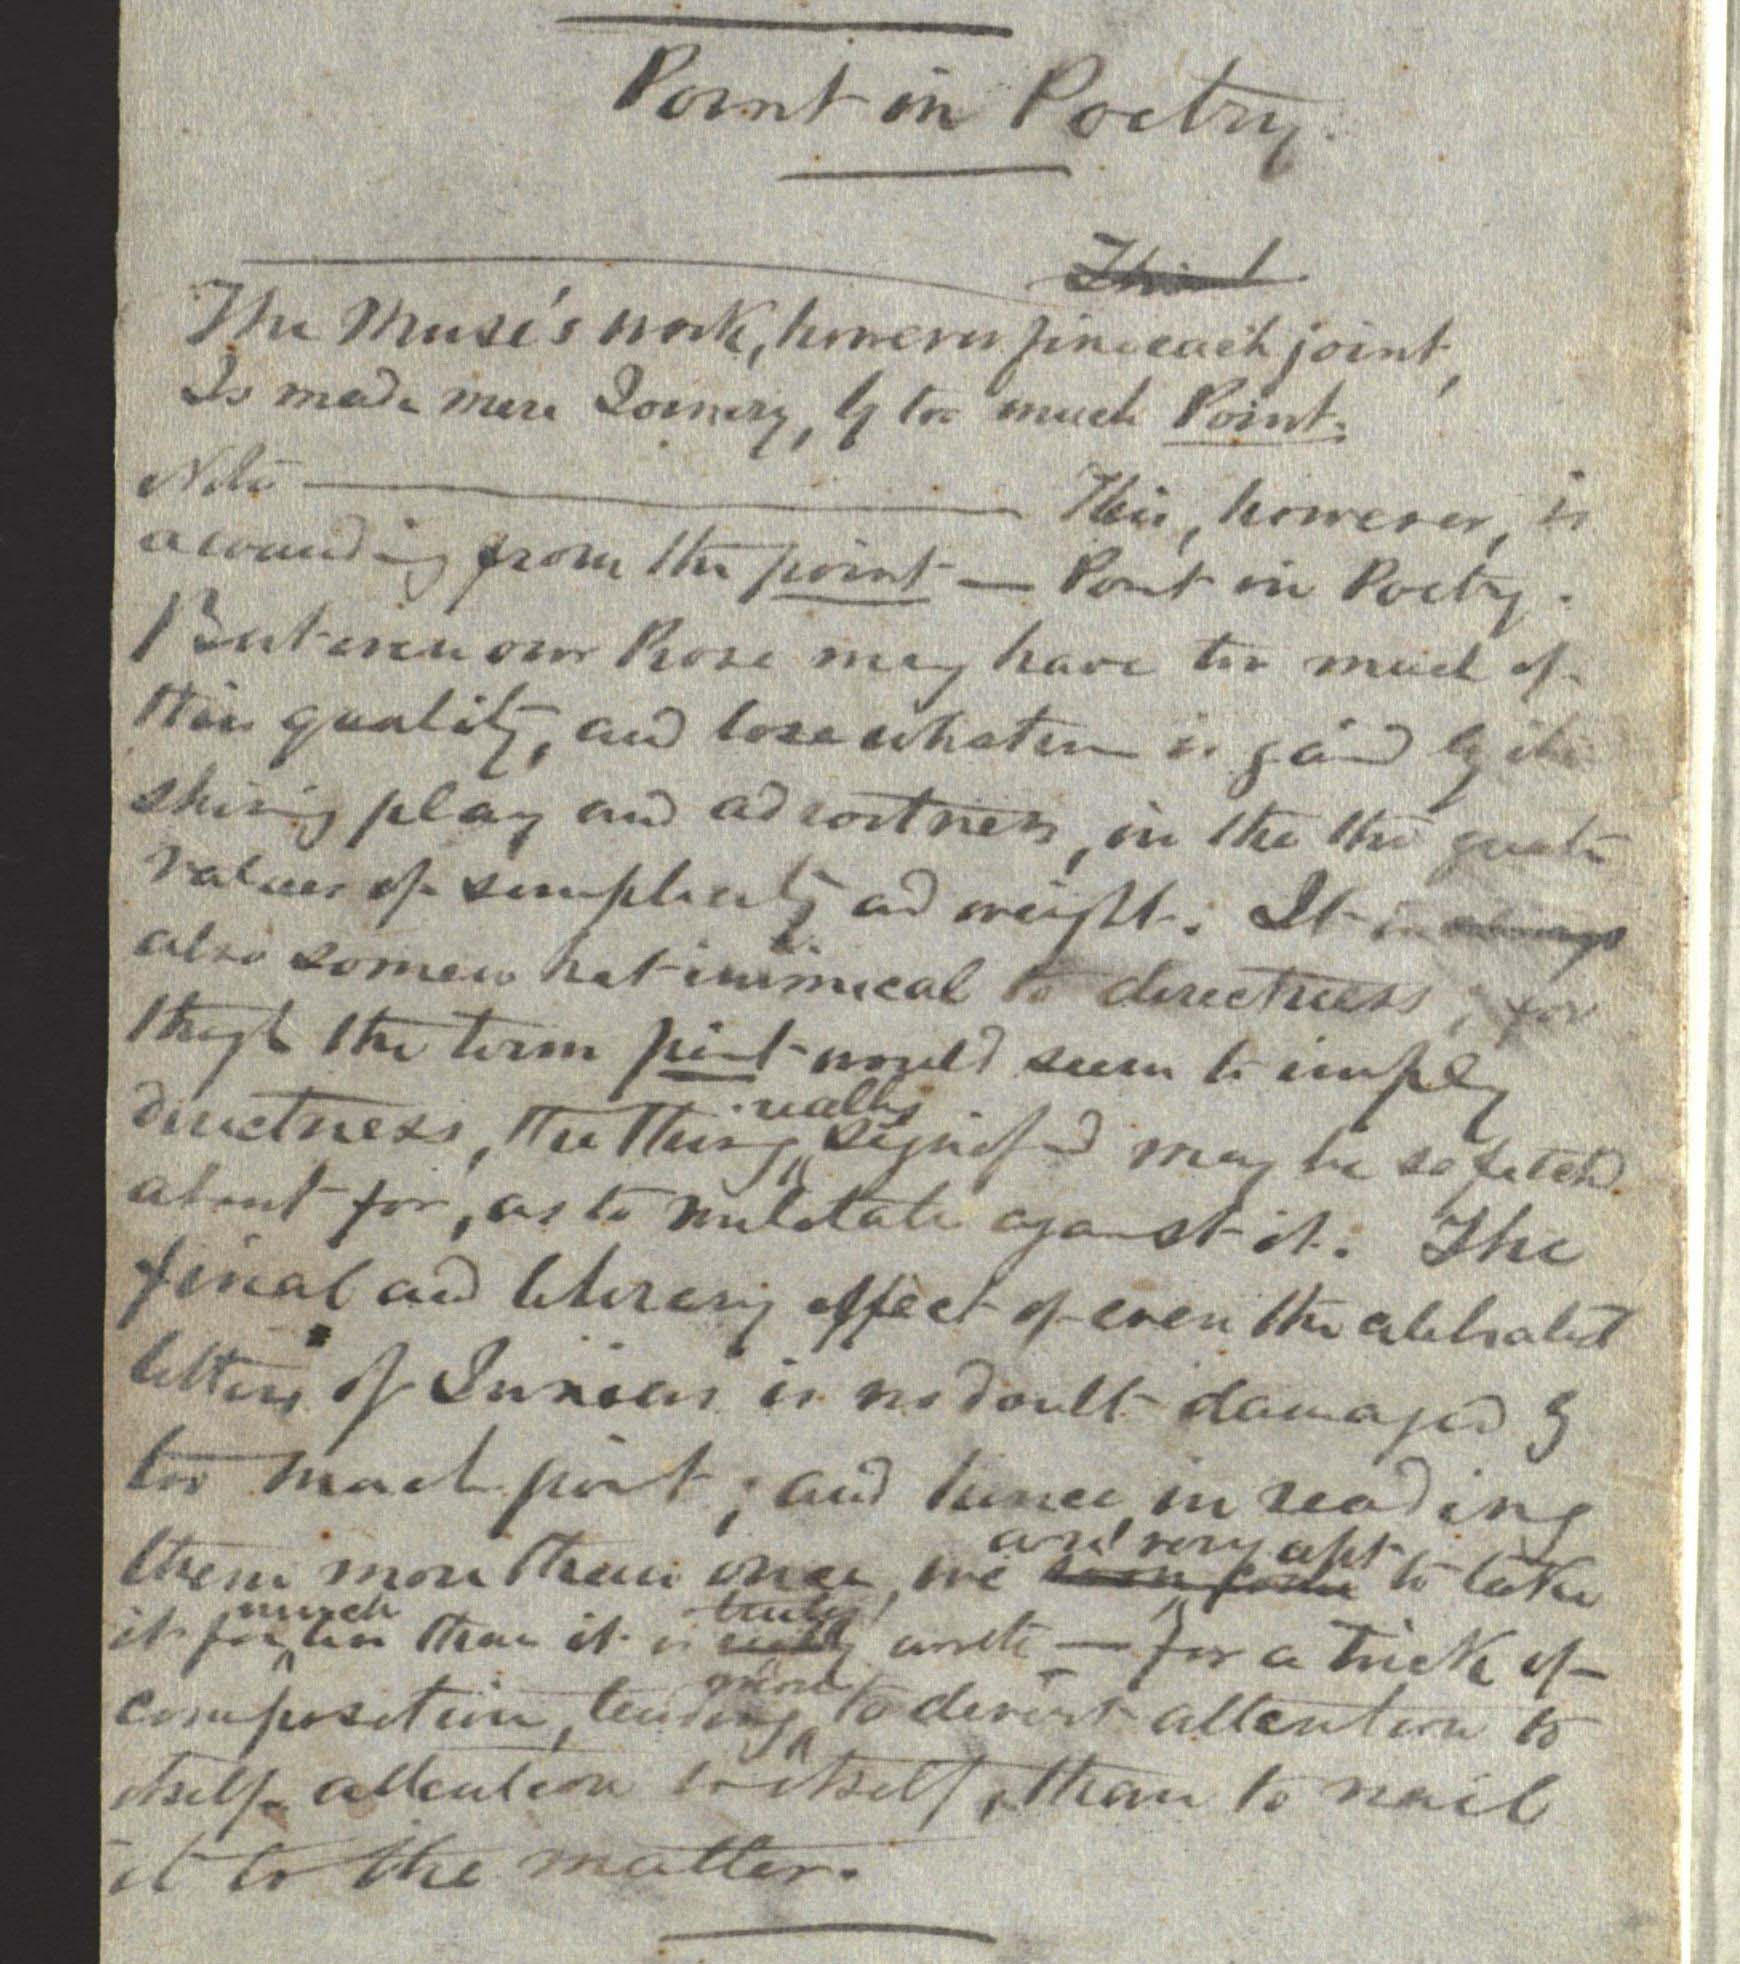 Point in Poetry.
The Muse's work, however fine each joint,
Is made mere Joinery, by too much Point.
Note This, however, is
a wand'ing from the point — Point in Poetry.
But even our Prose may have too much of
this quality, and lose whatever is gain'd by its
shining play and adroitness, in the the greater
values of simplicity and weight. It is always
also somewhat inimical to directness, for
though the term point would seem to imply
really
directness, the thing signified may be so fetch'd
about for, as to militate against it. The
final and literary effect of even the celebrated
letters of Junius is no doubt damaged by
too much point; and hence, in reading
are very apt
them more than once, we soon come to take
much truly
it for less than it is really worth — for a trick of
more
composition, tending to divert attention to
itself attention to itself, than to nail
it to the matter.